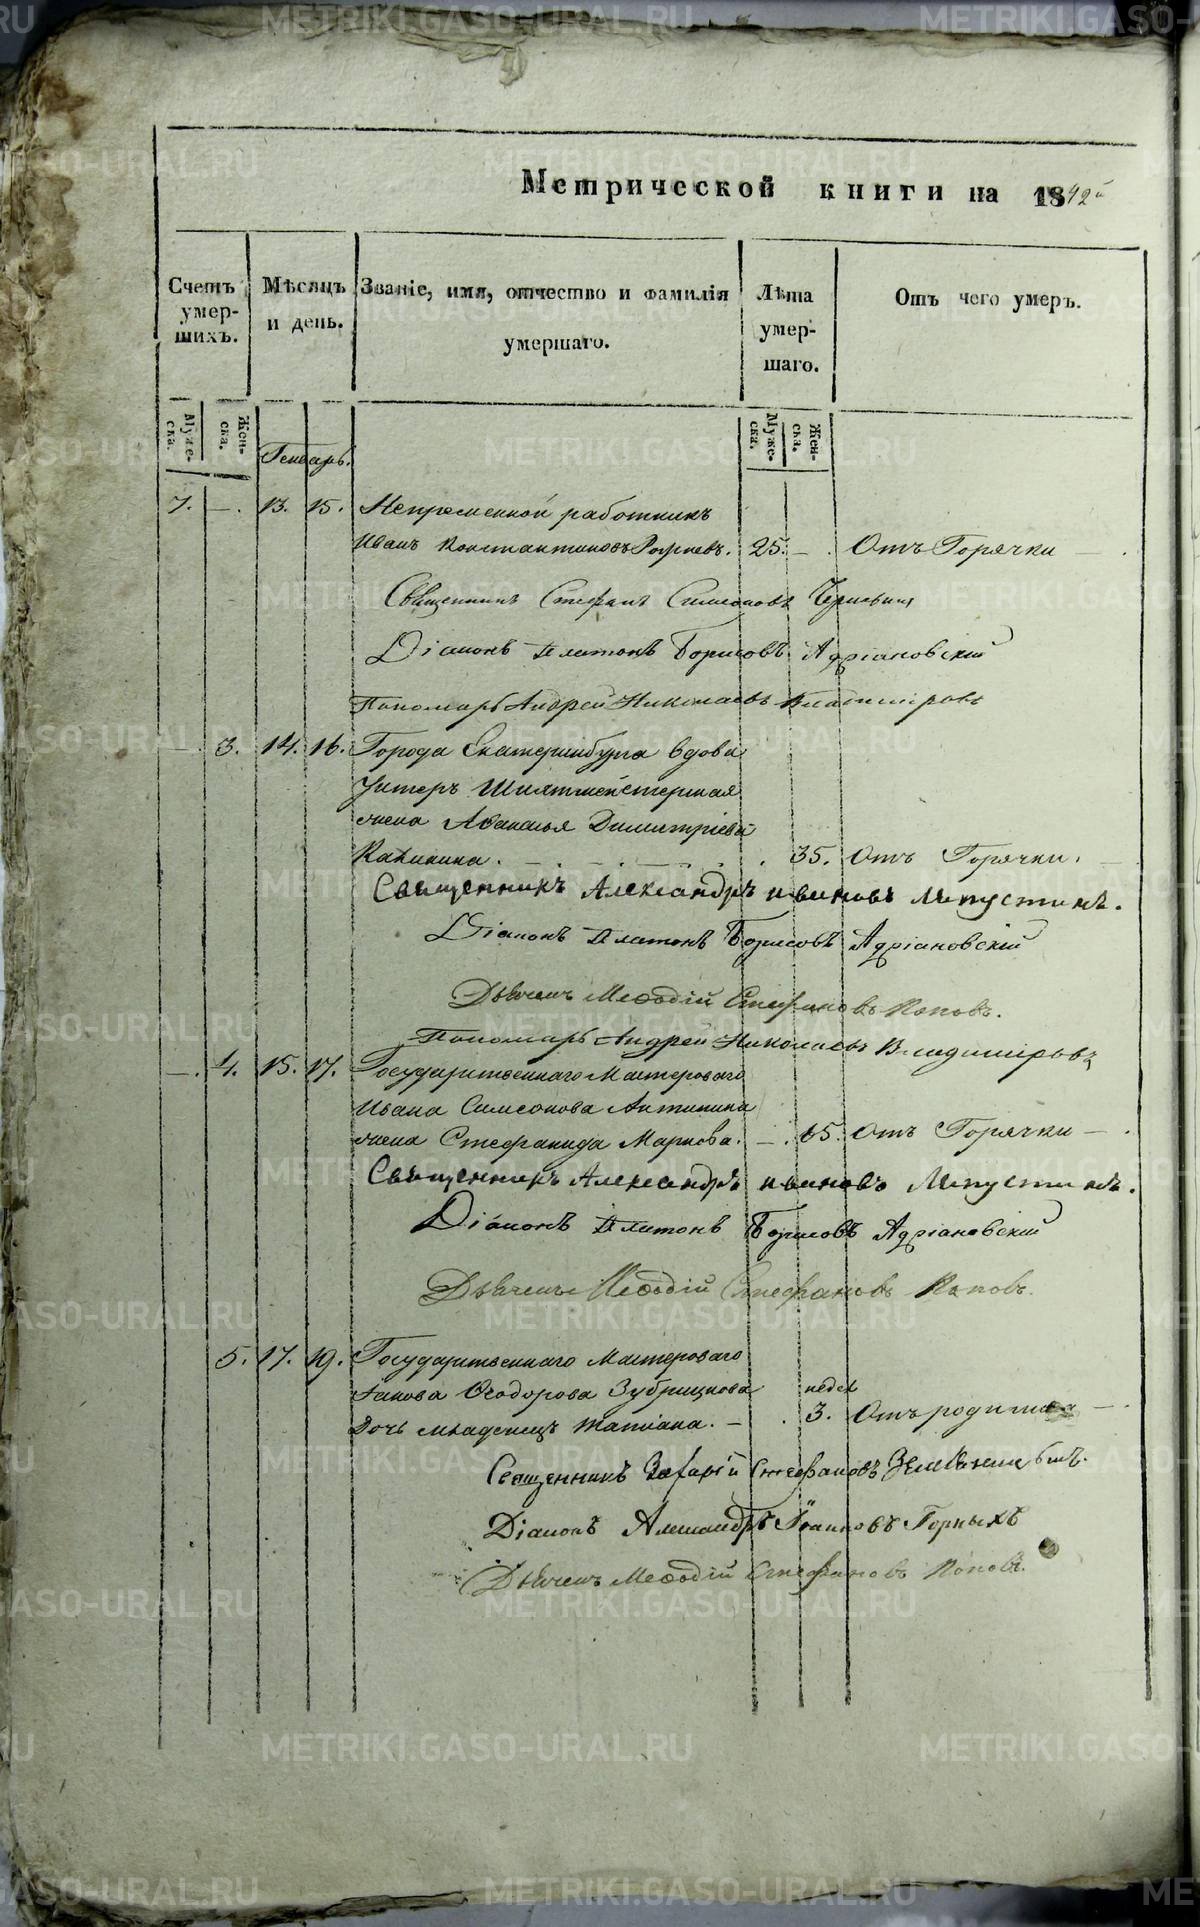 Метрической книги на 1842й
Счетъ умер-шихъ.
Мѣсяцъ и день.
Званіе, имя, отчество и фамилія умершаго.
Лѣта умер-шаго.
Отъ чего умеръ.
Муже-ска.
Жен-ска.
Муже-ска.
Жен-ска.
Генварь.
7. — . 13. 15. Непременной работникъ
Иванъ Константиновъ . 25. — . Отъ Горячки — .
Священникъ Стефанъ Симеоновъ
Діаконъ Платонъ Борисовъ Адріановскій
Пономарь Андрей Николаевъ Владимировъ
— . 3. 14. 16. Города Екатеринбурга вдова
Унтеръ Шихтмейстерская
жена Афанасья Димитріева
Калинина . — . — . 35. Отъ Горячки. —
Священникъ Александръ Ивановъ Мапустинъ.
Діаконъ Платонъ Борисовъ Адріановскій
Дьячекъ Меѳодій Стефановъ Поповъ.
Пономарь Андрей Николаевъ Владимировъ
— . 4. 15. 17. Государственнаго Мастероваго
Ивана Симеонова Антипина
жена Стефанида Маркова. — . 65. Отъ Горячки — .
Священникъ Александръ Ивановъ Мапустинъ.
Діаконъ Платонъ Борисовъ Адріановскій
Дьячекъ Меѳодій Стефановъ Поповъ.
5. 17. 19. Государственнаго Мастероваго
Іакова Ѳеодорова Зубрицкова недел
Дочь младенецъ Татіана. — . 3. Отъ родимца — .
Священникъ Захарій Стефановъ
Діаконъ Александръ Іоанновъ Горныхъ
Дьячекъ Меѳодій Стефановъ Поповъ.
METRIKI.GASO-URAL.RU